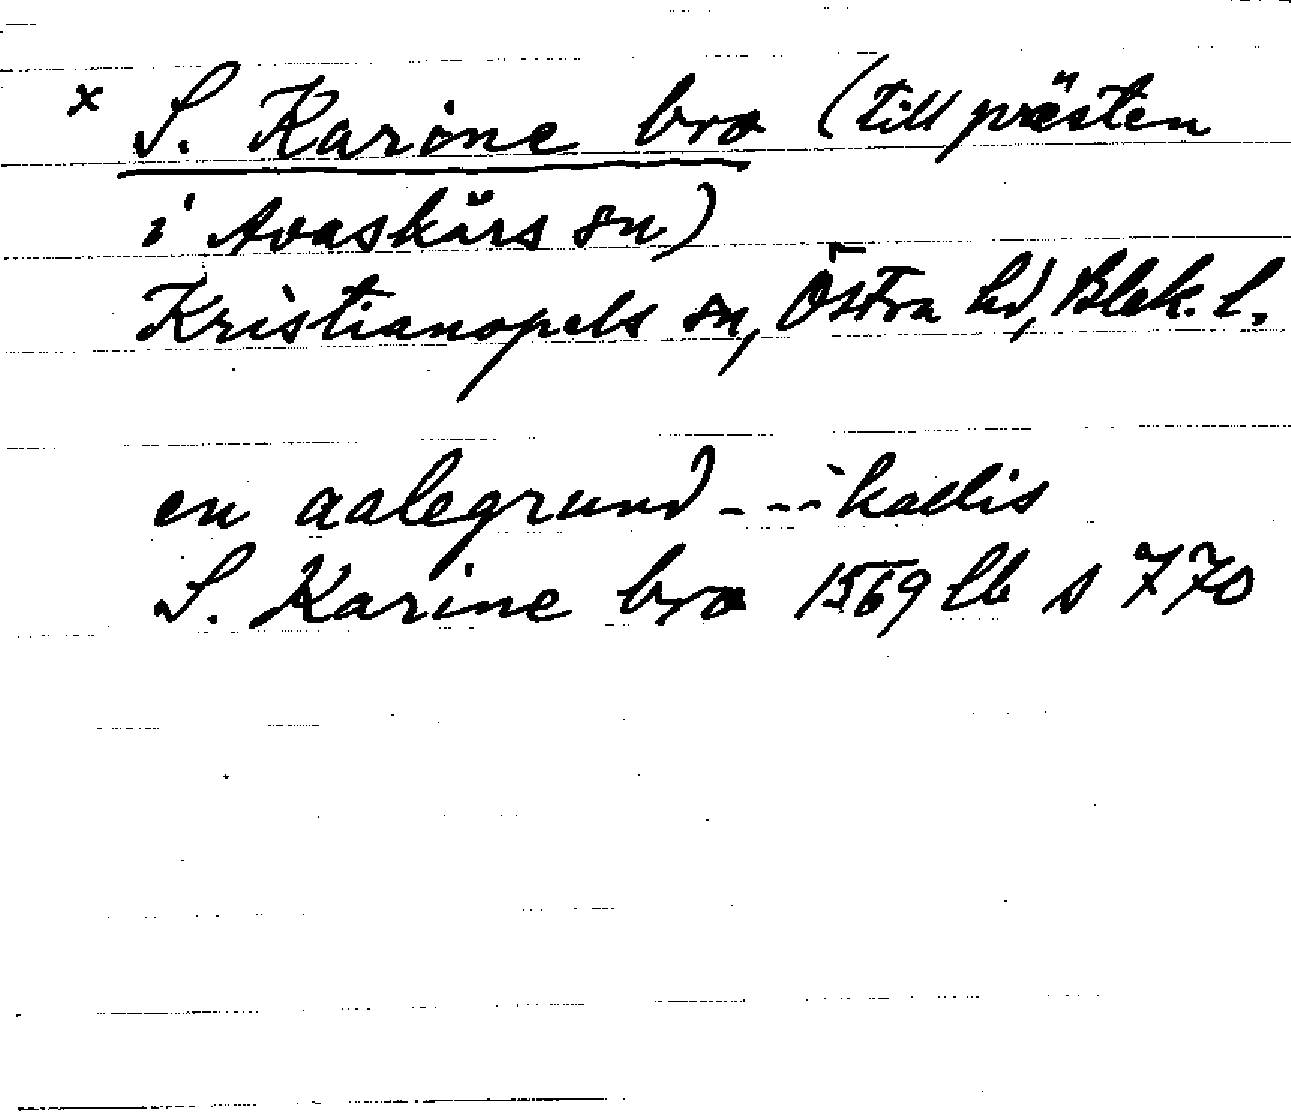 x S. Karine bro (till prästen
i Avaskärs sn)
Kristianopels sn, Östra hd, Blek. l.
en aalegrund - - - kallis
S. Karine bro 1569 lb s 770